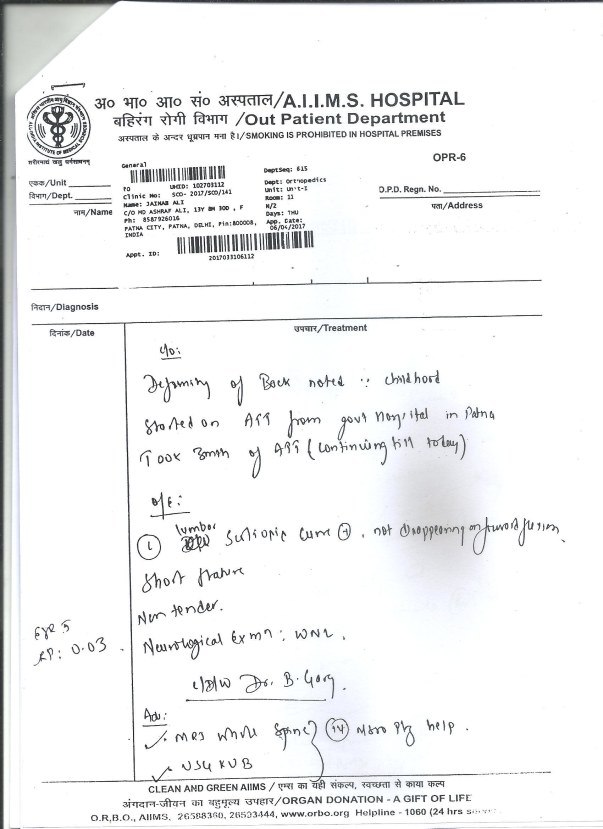 अ० भा० आ० सं० अस्पताल/A.I.I.M.S. HOSPITAL
बहिरंग रोगी विभाग /Out Patient Department
अस्पताल के अन्दर धूम्रपान मना है।/SMOKING IS PROHIBITED IN HOSPITAL PREMISES
OPR-6
एकक/Unit
विभाग/Dept.
नाम/Name
General
UHID: 102703112
Clinic No: SCO- 2017/SCO/141
Name: JAINAB ALI
C/O MD ASHRAF ALI, 13Y 8M 30D , F
Ph: 8587926016
PATNA CITY, PATNA, DELHI, Pin:800008,
INDIA
Appt. ID:
2017033106112
DeptSeq: 615
Dept: Orthopedics
Unit: Unit-I
Room: 11
N/2
Days: THU
App. Date:
06/04/2017
O.P.D. Regn. No.
पता/Address
निदान/Diagnosis
दिनांक/Date
उपचार/Treatment
c/o:
Deformity of Back noted childhood
Started on ATT from govt Hospital in Patna
Took 3mth of ATT (continuing till today)
o/E:
① lumbar Scoliotic Curve +, not disappearing on forward flexion.
Short stature
Non tender.
Neurological Exmn: WNL.
ESR 5
CRP: 0.03
c/D/W Dr. B. Garg.
Adv:
✓ MRI Whole Spine
✓ USG KUB
help.
CLEAN AND GREEN AIIMS / एम्स का यही संकल्प, स्वच्छता से काया कल्प
अंगदान-जीवन का बहुमूल्य उपहार/ORGAN DONATION - A GIFT OF LIFE
O.R.B.O., AIIMS, 26588360, 26593444, www.orbo.org Helpline - 1060 (24 hrs